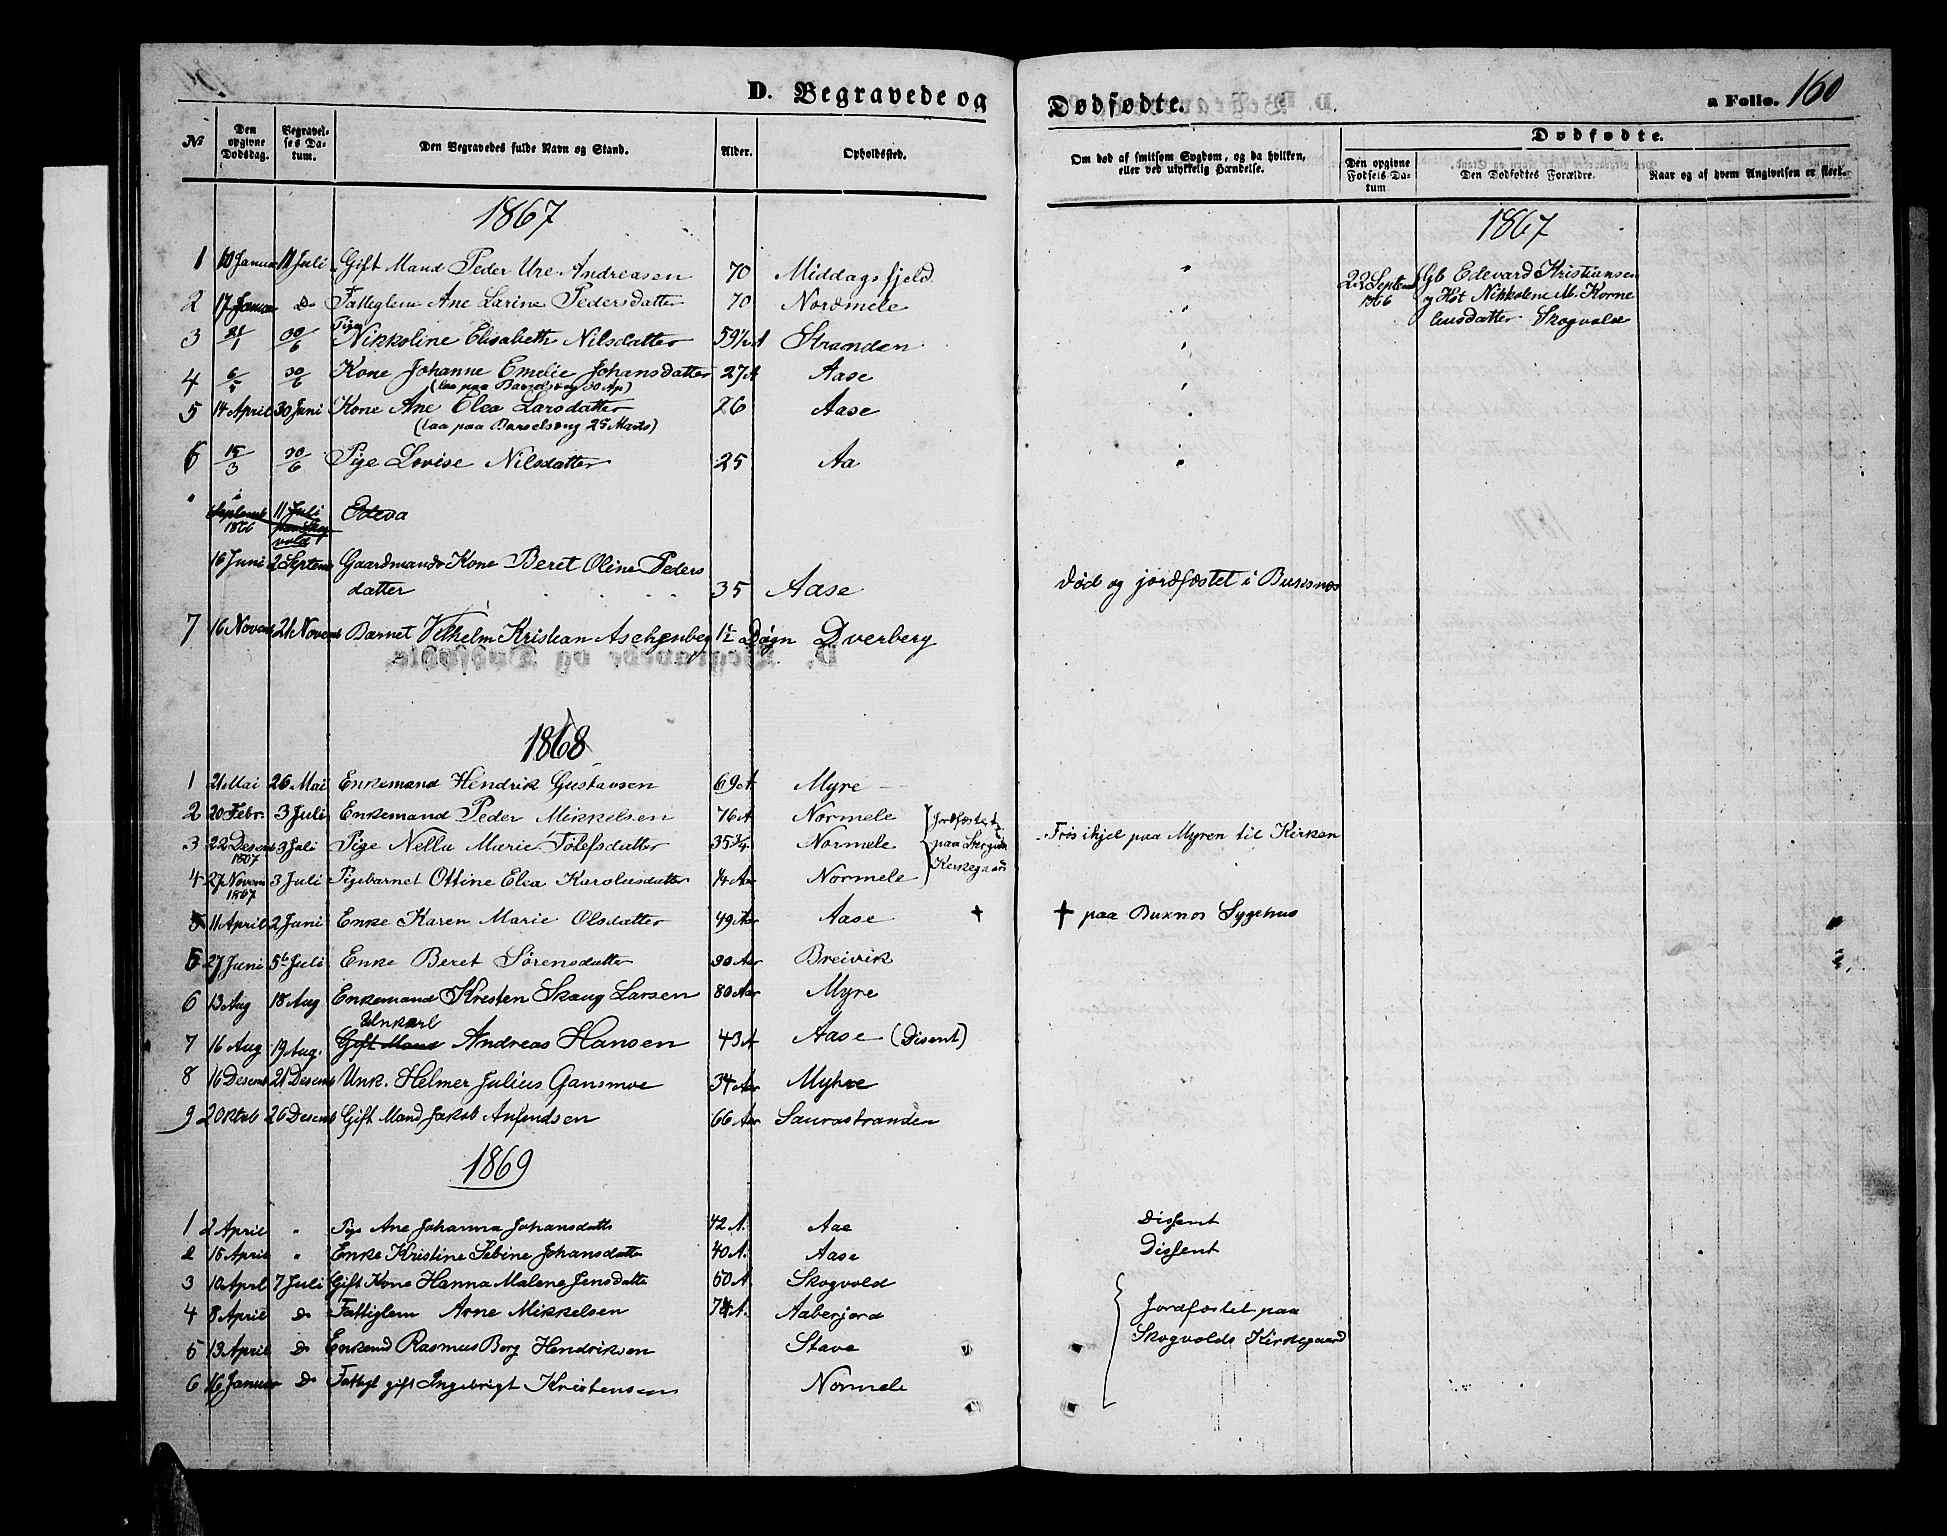 D. Begravede og Dødfødte. a Folio. 160
№ Den opgivne Dødsdag. Begravelses Datum. Den Begravedes fulde Navn og Stand. Alder. Opholdssted. Om død af smitsom Sygdom, og da hvilken, eller ved ulykkelig Hændelse. Dødfødte. Den opgivne Fødsels Datum Den Dødfødtes Forældre. Naar og af hvem Angivelsen er skeet.
1867 1867
1 10 Januar 11 Juli Gift Mand Peder Ure Andreasen 70 Middagsfjeld " 22 Septemb 1866 Edevard Kristiansen
og Hst Nikkoline M. Korneliusdatter Skogvold
2 17 Januar Do Fatteglem Ane Larine Pedersdatter 70 Nordmele "
3 21/1 30/6 Pige Nikkoline Elisabeth Nilsdatter 59½ A Stranden "
4 30/6 Kone Johanne Emilie Johansdatter 27 A Aase "
(laa paa Barselseng 30 Ap)
5 14 April 30 Juni Kone Ane Elea Larsdatter 26 Aase "
(laa paa Barselseng 25 Marts)
6 15/3 30/6 Pige Lovise Nilsdatter 25 Aa "
Septemb 1866 11 Juli paa Skogvold Edeva
16 Juni 2 Septemb Gaardmands Kone Beret Oline Peders
datter 35 Aase Død og jordfæstet i Buksnæs
7 16 Novemb 21 Novemb Barnet Vilhelm Kristian Aschenberg 1½ Døgn Dverberg
1868
1 21 Mai 26 Mai Enkemand Hendrik Gustavsen 69 A Myre
2 20 Febr. 3 Juli Enkemand Peder Mikkelsen 76 A Normele Jordfæstet
3 22 Desemb 1867 3 Juli Pige Nella Marie Tolefsdatter 35 ¾ Normele paa Skogvold Frøs ihjel paa Myren til Kirken
4 27 Novem 1867 3 Juli Pigebarnet Ottine Elea Karolusdatter ¼ Aar Normele Kirkegaard
5 11 April 2 Juni Enke Karen Marie Olsdatter 49 Aar Aase † † paa Buxnos Sygehus
5 27 Juni 5te Juli Enke Beret Sørensdatter 90 Aar Breivik
6 13 Aug 18 Aug Enkemand Kresten Skaug Larsen 80 Aar Myre
7 16 Aug 19 Aug. Gift Mand Unkarl Andreas Hansen 43 A Aase (Disent)
8 16 Desemb 21 Desemb Unk. Helmer Julius Gansmoe 34 Aar Myhre
9 2 Oktob 26 Desemb Gift Mand Jakob Anfindsen 66 Aar Saurastranden
1869
1 2 April " Pige Ane Johanna Johansdatte 42 A. Aae Dissent
2 15 April " Enke Kristine Sebine Johansdatte 40 A. Aase Dissent
3 10 April 7 Juli Gift Kone Hanna Malene Jensdatte 50 A Skogvold
4 8 April Do Fattiglem Arne Mikkelsen 74 A. Aaberjord Jordfæstet paa
5 13 April Do Enkemd Rasmus Berg Hendriksen Stave Skogvolds Kirkegaard
6 16 Januar Do Fattigl gift Ingebrigt Kristensen Normele